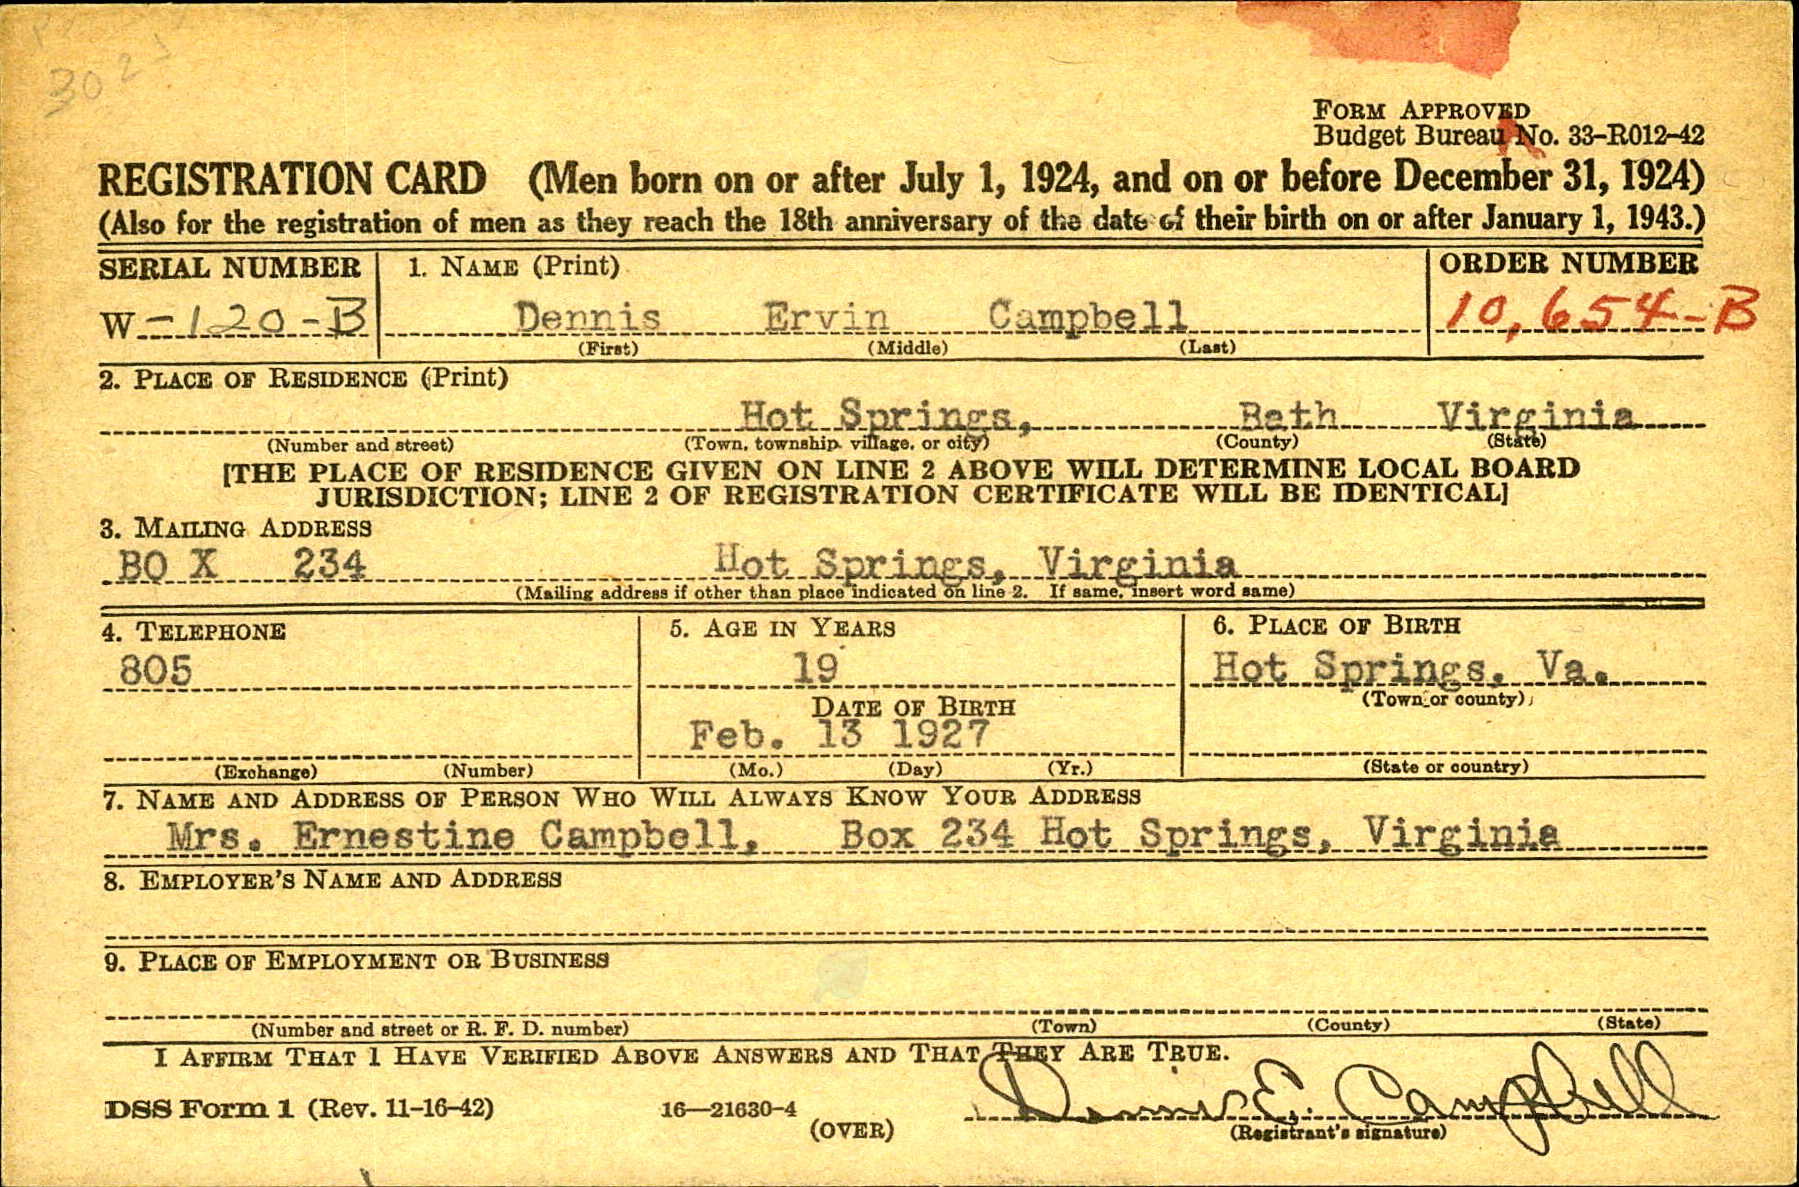 302
FORM APPROVED
Budget Bureau No. 33-R012-42
REGISTRATION CARD (Men born on or after July 1, 1924, and on or before December 31, 1924)
(Also for the registration of men as they reach the 18th anniversary of the date of their birth on or after January 1, 1943.)
SERIAL NUMBER 1. NAME (Print) ORDER NUMBER
W-120-B Dennis Ervin Campbell 10,654-B
(First) (Middle) (Last)
2. PLACE OF RESIDENCE (Print)
Hot Springs, Bath Virginia
(Number and street) (Town, township, village, or city) (County) (State)
[THE PLACE OF RESIDENCE GIVEN ON LINE 2 ABOVE WILL DETERMINE LOCAL BOARD
JURISDICTION; LINE 2 OF REGISTRATION CERTIFICATE WILL BE IDENTICAL]
3. MAILING ADDRESS
BO X 234 Hot Springs, Virginia
(Mailing address if other than place indicated on line 2. If same, insert word same)
4. TELEPHONE 5. AGE IN YEARS 6. PLACE OF BIRTH
805 19 Hot Springs, Va.
(Town or county)
DATE OF BIRTH
Feb. 13 1927
(Exchange) (Number) (Mo.) (Day) (Yr.) (State or country)
7. NAME AND ADDRESS OF PERSON WHO WILL ALWAYS KNOW YOUR ADDRESS
Mrs. Ernestine Campbell, Box 234 Hot Springs, Virginia
8. EMPLOYER'S NAME AND ADDRESS
9. PLACE OF EMPLOYMENT OR BUSINESS
(Number and street or R. F. D. number) (Town) (County) (State)
I AFFIRM THAT I HAVE VERIFIED ABOVE ANSWERS AND THAT THEY ARE TRUE.
DSS Form 1 (Rev. 11-16-42) 16—21630-4 Dennis E. Campbell
(OVER) (Registrant's signature)